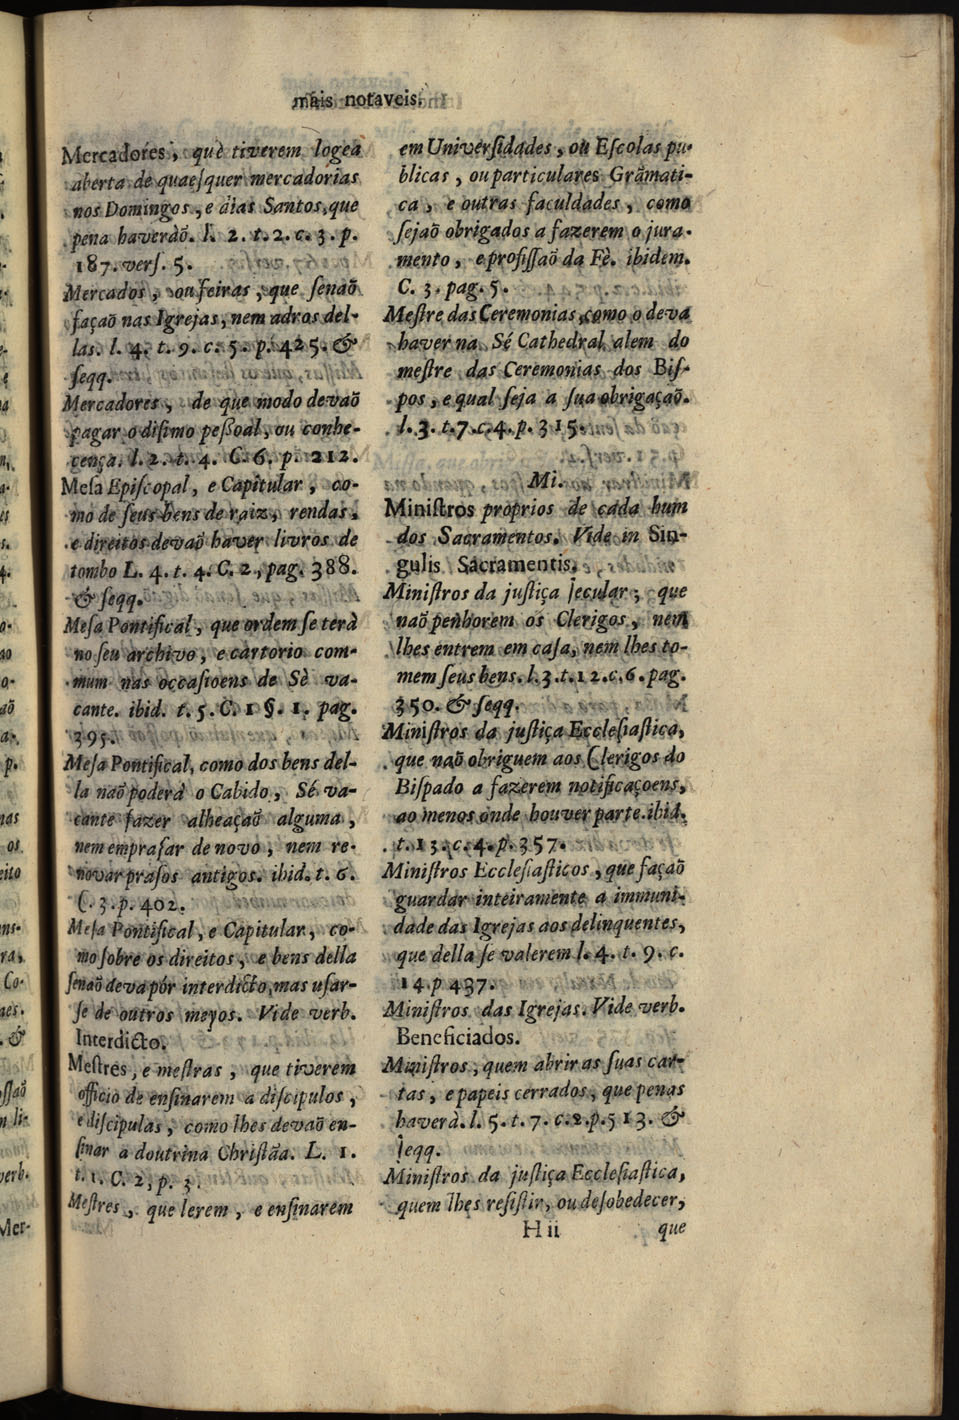 mais notaveis.
Mercadores, què tiverem logea
aberta de quaesquer mercadorias
nos Domingos, e dias Santos, que
pena haveràõ. l. 2. t. 2. c. 3. p.
187. verſ. 5.
Mercados, ou feiras, que ſenaõ
façaõ nas Igrejas, nem adros del-
las. l. 4. t. 9. c. 5. p. 425. &
ſeqq.
Mercadores, de que modo devaõ
pagar o diſimo peſſoal, ou conhe-
cença. l. 2. t. 4. C. 6. p. 212.
Meſa Epiſcopal, e Capitular, co-
mo de ſeus bens de raiz, rendas,
e direitos devaõ haver livros de
tombo L. 4. t. 4. C. 2, pag. 388.
& ſeqq.
Meſa Pontifical, que ordem ſe terà
no ſeu archivo, e cartorio com-
mum nas occaſioens de Sè va-
cante. ibid. t. 5. C. 1 §. 1. pag.
395.
Meſa Pontifical, como dos bens del-
la naõ poderà o Cabido, Sé va-
cante fazer alheaçaõ alguma,
nem empraſar de novo, nem re-
novar praſos antigos. ibid. t. 6.
C. 3. p. 402.
Meſa Pontifical, e Capitular, co-
mo ſobre os direitos, e bens della
ſenaõ deva pór interdicto, mas uſar-
ſe de outros meyos. Vide verb.
Interdicto.
Meſtres, e meſtras, que tiverem
officio de enſinarem a diſcipulos,
e diſcipulas, como lhes devaõ en-
ſinar a doutrina Chriſtãa. L. 1.
t. 1. C. 2, p. 3.
Meſtres, que lerem, e enſinarem
em Univerſidades, ou Eſcolas pu-
blicas, ou particulares Grãmati-
ca, e outras faculdades, como
ſejaõ obrigados a fazerem o jura-
mento, e profiſſaõ da Fè. ibidem.
C. 3. pag. 5.
Meſtre das Ceremonias, como o deva
haver na Sé Cathedral, alem do
meſtre das Ceremonias dos Biſ-
pos, e qual ſeja a ſua obrigaçaõ.
l. 3. t. 7. c. 4. p. 315.
Mi.
Miniſtros proprios de cada hum
dos Sacramentos. Vide in Sin-
gulis Sacramentis.
Miniſtros da juſtiça ſecular; que
naõ penhorem os Clerigos, nem
lhes entrem em caſa, nem lhes to-
mem ſeus bens. l. 3. t. 12. c. 6. pag.
350. & ſeqq.
Miniſtros da juſtiça Eccleſiaſtica,
que naõ obriguem aos Clerigos do
Biſpado a fazerem notificaçoens,
ao menos onde houver parte. ibid.
t. 13. c. 4. p. 357.
Miniſtros Eccleſiaſticos, que façaõ
guardar inteiramente a immuni-
dade das Igrejas aos delinquentes,
que della ſe valerem l. 4. t. 9. c.
14. p 437.
Miniſtros das Igrejas. Vide verb.
Beneficiados.
Miniſtros, quem abrir as ſuas car-
tas, e papeis cerrados, que penas
haverà. l. 5. t. 7. c. 2. p. 513. &
ſeqq.
Miniſtros da juſtiça Eccleſiaſtica,
quem lhes reſiſtir, ou deſobedecer,
H ii que